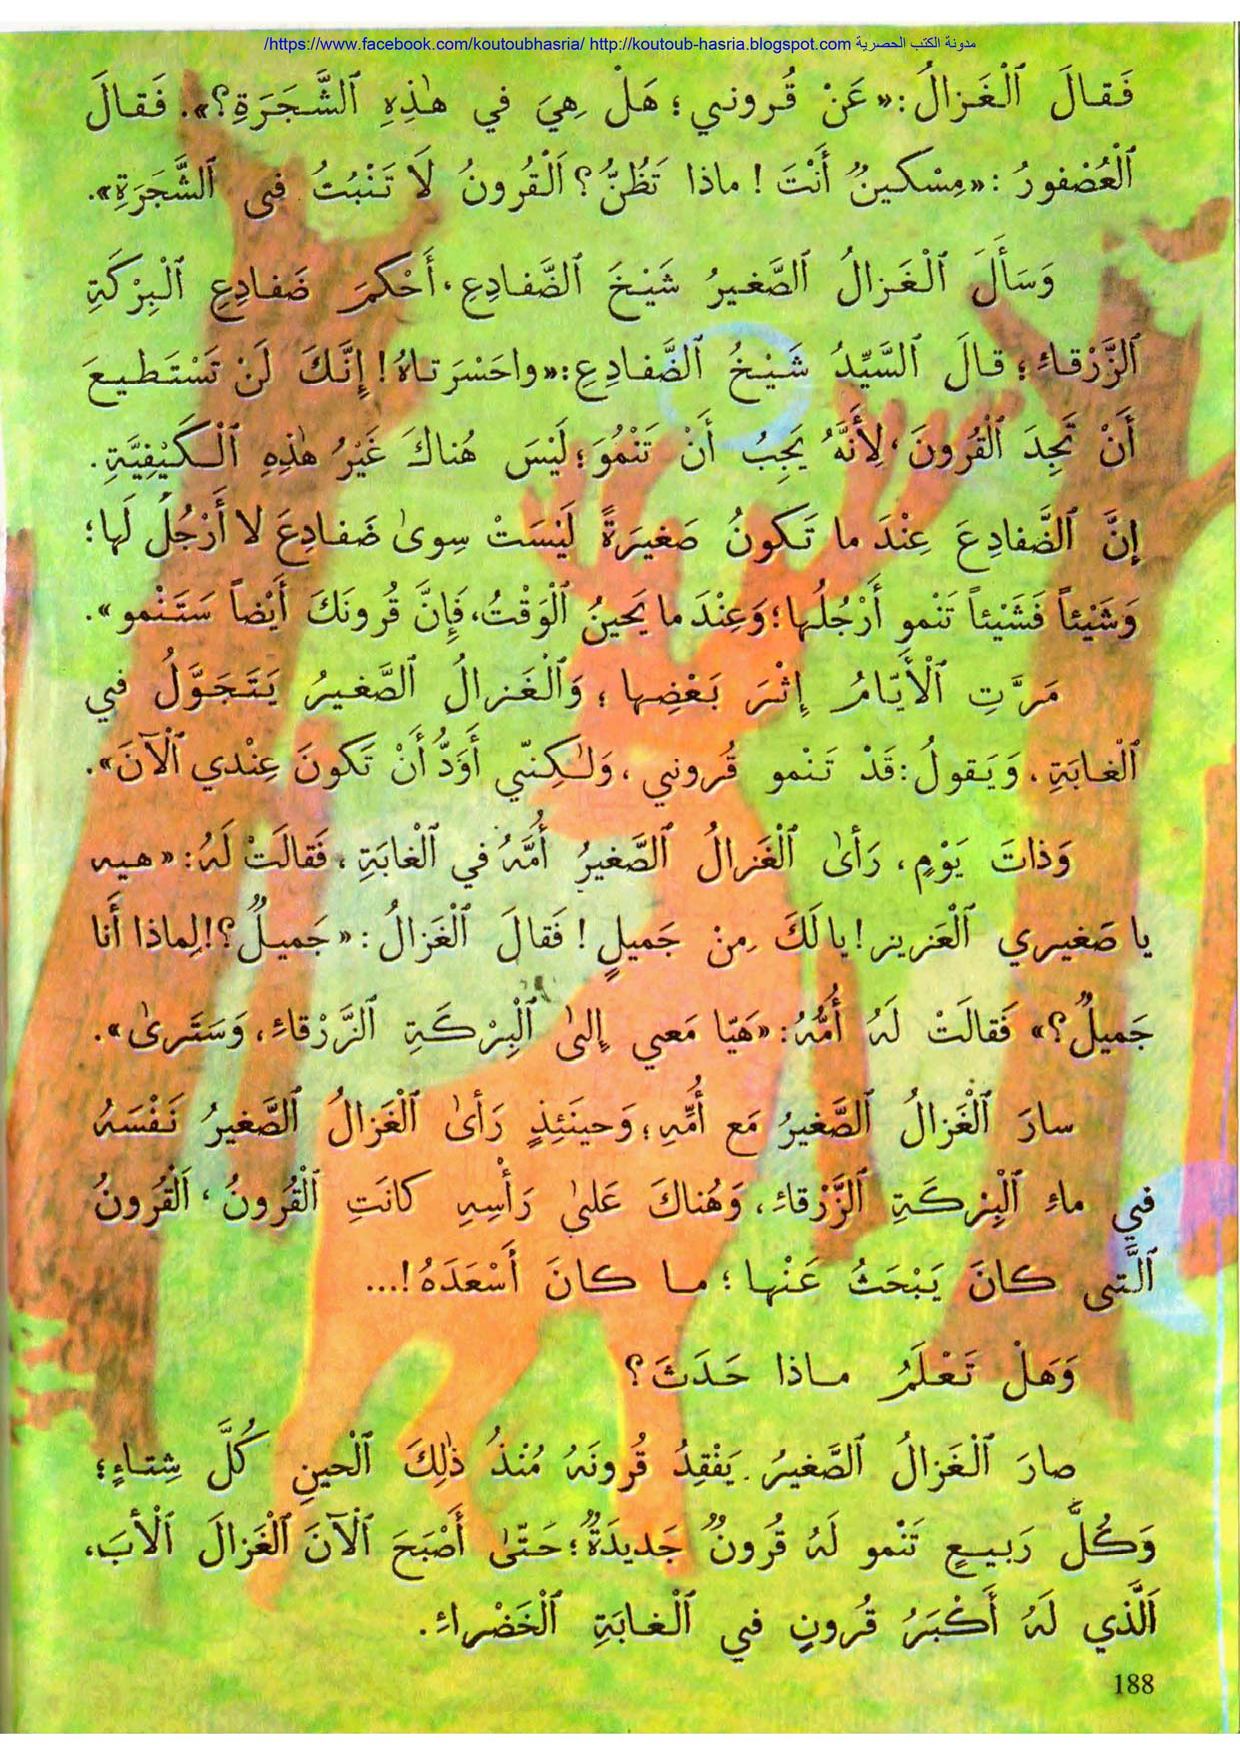 https://www.facebook.com/koutoubhasria/ http://koutoub-hasria.blogspot.com مدونة الكتب الحصرية/
فَقالَ ٱلْغَزالُ :«عَنْ قُروني ؛ هَلْ هِيَ في هٰذِهِ ٱلشَّجَرَةِ؟». فَقالَ
ٱلْعُصْفورُ :«مِسْكينٌ أَنْتَ ! ماذا تَظُنُّ ؟ اَلْقُرونُ لَا تَنْبُتُ فى ٱلشَّجَرَةِ».
وَسَأَلَ ٱلْغَزالُ ٱلصَّغيرُ شَيْخَ ٱلضَّفادِعِ ، أَحْكَمَ ضَفادِعِ ٱلْبِرْكَةِ
ٱلزَّرْقاءِ ؛ قالَ ٱلسَّيِّدُ شَيْخُ ٱلضَّفادِعِ :«واحَسْرَتاهُ ! إِنَّكَ لَنْ تَسْتَطيعَ
أَنْ تَجِدَ ٱلْقُرونَ ، لِأَنَّهُ يَجِبُ أَنْ تَنْمُوَ ؛ لَيْسَ هُناكَ غَيْرُ هٰذِهِ ٱلْكَيْفِيَّةِ .
إِنَّ ٱلضَّفادِعَ عِنْدَ ما تَكونُ صَغيرَةً لَيْسَتْ سِوىٰ ضَفادِعَ لا أَرْجُلُ لَها ؛
وَشَيْئاً فَشَيْئاً تَنْمو أَرْجُلُها ؛ وَعِنْدَ ما يَحينُ ٱلْوَقْتُ ، فَإِنَّ قُرونَكَ أَيْضاً سَتَنْمو ».
مَرَّتِ ٱلْأَيّامُ إِثْرَ بَعْضِها ، وَٱلْغَزالُ ٱلصَّغيرُ يَتَجَوَّلُ في
ٱلْغابَةِ . وَيَقولُ : قَدْ تَنْمو قُروني ، وَلٰكِنّي أَوَدُّ أَنْ تَكونَ عِنْدي ٱلْآنَ».
وَذاتَ يَوْمٍ ، رَأىٰ ٱلْغَزالُ ٱلصَّغيرُ أُمَّهُ في ٱلْغابَةِ ، فَقالَتْ لَهُ :«هيه
يا صَغيري ٱلْعَزيز ! يا لَكَ مِنْ جَميلٍ ! فَقالَ ٱلْغَزالُ :«جَميلٌ؟! لِماذا أَنا
جَميلٌ ؟» فَقالَتْ لَهُ أُمُّهُ :«هَيّا مَعي إِلىٰ ٱلْبِرْكَةِ ٱلزَّرْقاءِ ، وَسَتَرىٰ».
سارَ ٱلْغَزالُ ٱلصَّغيرُ مَع أُمِّهِ ؛ وَحينَئِذٍ رَأىٰ ٱلْغَزالُ ٱلصَّغيرُ نَفْسَهُ
في ماءِ ٱلْبِرْكَةِ ٱلزَّرْقاءِ ، وَهُناكَ عَلىٰ رَأْسِهِ كانَتِ ٱلْقُرونُ ، اَلْقُرونُ
ٱلَّتى كانَ يَبْحَثُ عَنْها ؛ ما كانَ أَسْعَدَهُ !...
وَهَلْ تَعْلَمُ ماذا حَدَثَ ؟
صارَ ٱلْغَزالُ ٱلصَّغيرُ يَفْقِدُ قُرونَهُ مُنْذُ ذٰلِكَ ٱلْحينِ كُلَّ شِتاءٍ ؛
وَكُلَّ رَبيعٍ تَنْمو لَهُ قُرونٌ جَديدَةٌ ؛ حَتّىٰ أَصْبَحَ ٱلْآنَ ٱلْغَزالَ ٱلْأَبَ ،
اَلَّذي لَهُ أَكْبَرُ قُرونٍ في ٱلْغابَةِ ٱلْخَضْراءِ .
188